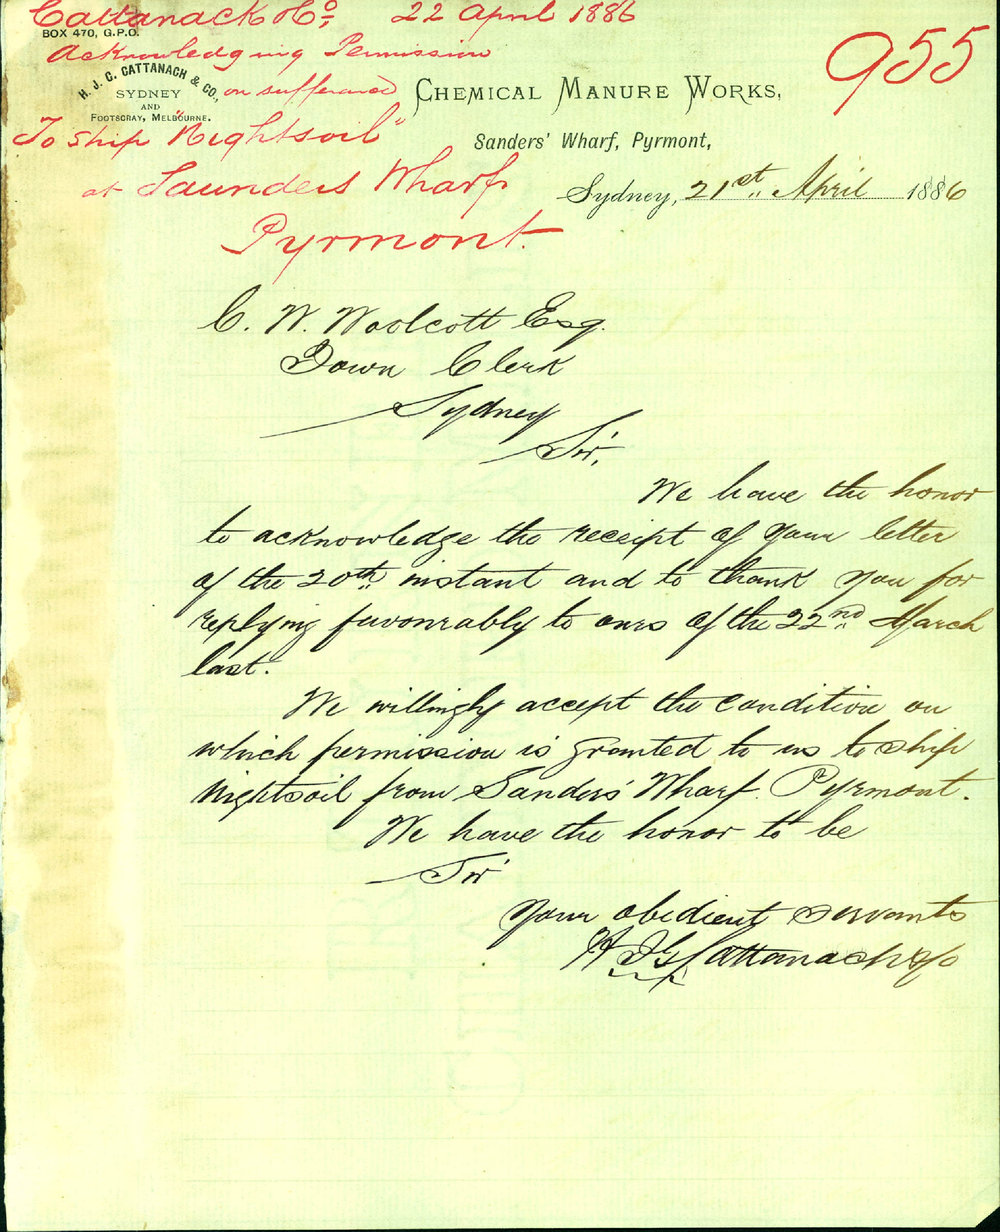 Cattanack & Co. 22 April 1886
BOX 470, G.P.O.
Acknowledging Permission
955
H. J. C. CATTANACH & CO.,
SYDNEY
AND
FOOTSCRAY, MELBOURNE.
on sufferance
CHEMICAL MANURE WORKS,
To Ship "Nightsoil"
Sanders' Wharf, Pyrmont,
at Saunders Wharf
Sydney, 21st April 1886
Pyrmont.
C. W. Woolcott Esq.
Town Clerk
Sydney
Sir,
We have the honor
to acknowledge the receipt of your letter
of the 20th instant and to thank you for
replying favourably to ours of the 22nd March
last.
We willingly accept the condition on
which permission is granted to us to ship
Nightsoil from Sanders' Wharf. Pyrmont.
We have the honor to be
Sir
Your obedient servants
H J C Cattanach & Co